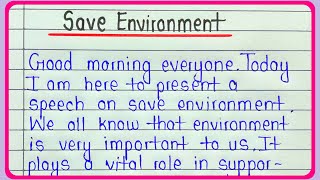 Save Environment
Good morning everyone. Today
I am here to present a
speech on save environment.
We all know that environment
is very important to us. It
plays a vital role in suppor-